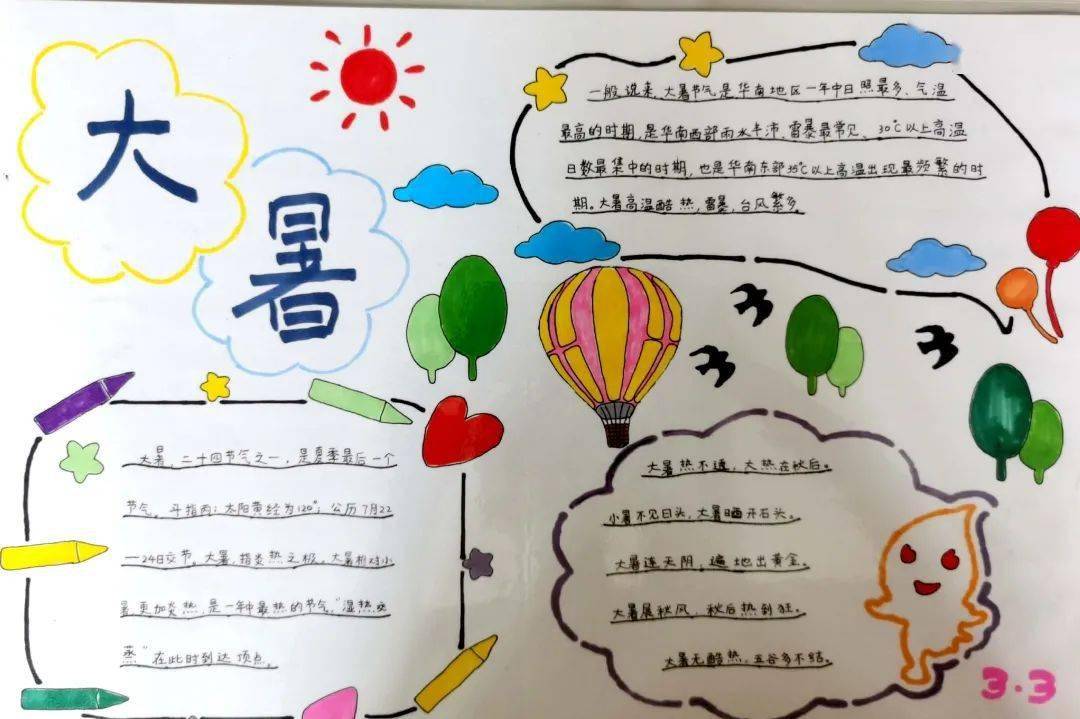 大
暑
一般说来,大暑节气是华南地区一年中日照最多、气温
最高的时期,是华南西部雨水丰沛,雷暴最常见、30℃以上高温
日数最集中的时期,也是华南东部35℃以上高温出现最频繁的时
期。大暑高温酷热,雷暴,台风繁多。
大暑,二十四节气之一,是夏季最后一个
节气。斗指丙;太阳黄经为120°;公历7月22
—24日交节。大暑,指炎热之极。大暑相对小
暑,更加炎热,是一年中最热的节气,“湿热交
蒸”在此时到达顶点。
大暑热不透,大热在秋后。
小暑不见日头,大暑晒开石头。
大暑连天阴,遍地出黄金。
大暑展秋风,秋后热到狂。
大暑无酷热,五谷多不结。
3.3